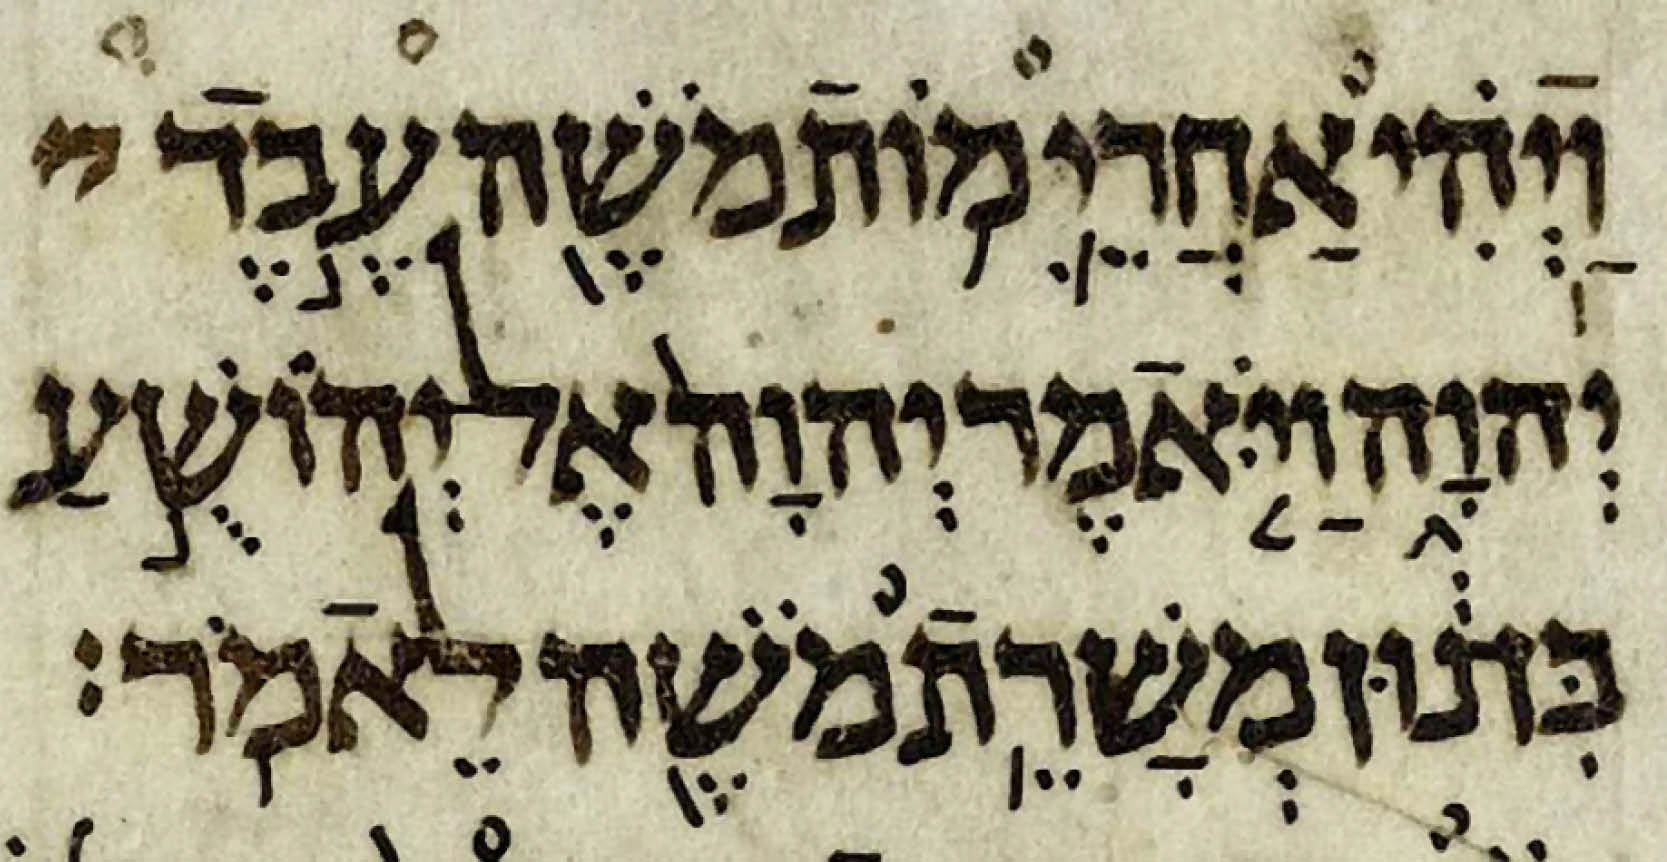 וַיְהִ֗י אַחֲרֵ֛י מ֥וֹת מֹשֶׁ֖ה עֶ֣בֶד י
יְהוָ֑ה וַיֹּ֤אמֶר יְהוָה֙ אֶל יְהוֹשֻׁ֣עַ
בִּן נ֔וּן מְשָׁרֵ֥ת מֹשֶׁ֖ה לֵאמֹ֥ר׃